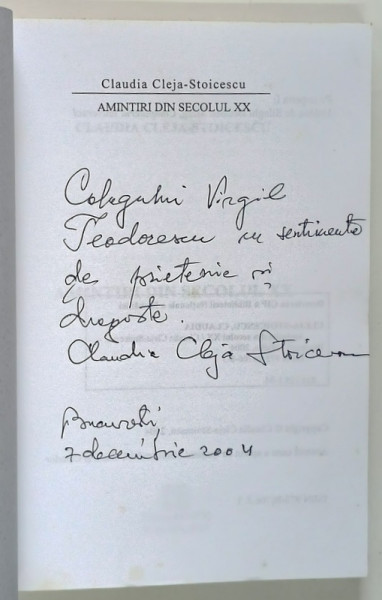 Claudia Cleja-Stoicescu
AMINTIRI DIN SECOLUL XX
Colegului Virgil
Teodorescu cu sentimente
de prietenie și
dragoste.
Claudia Cleja Stoicescu
București,
7 decembrie 2004